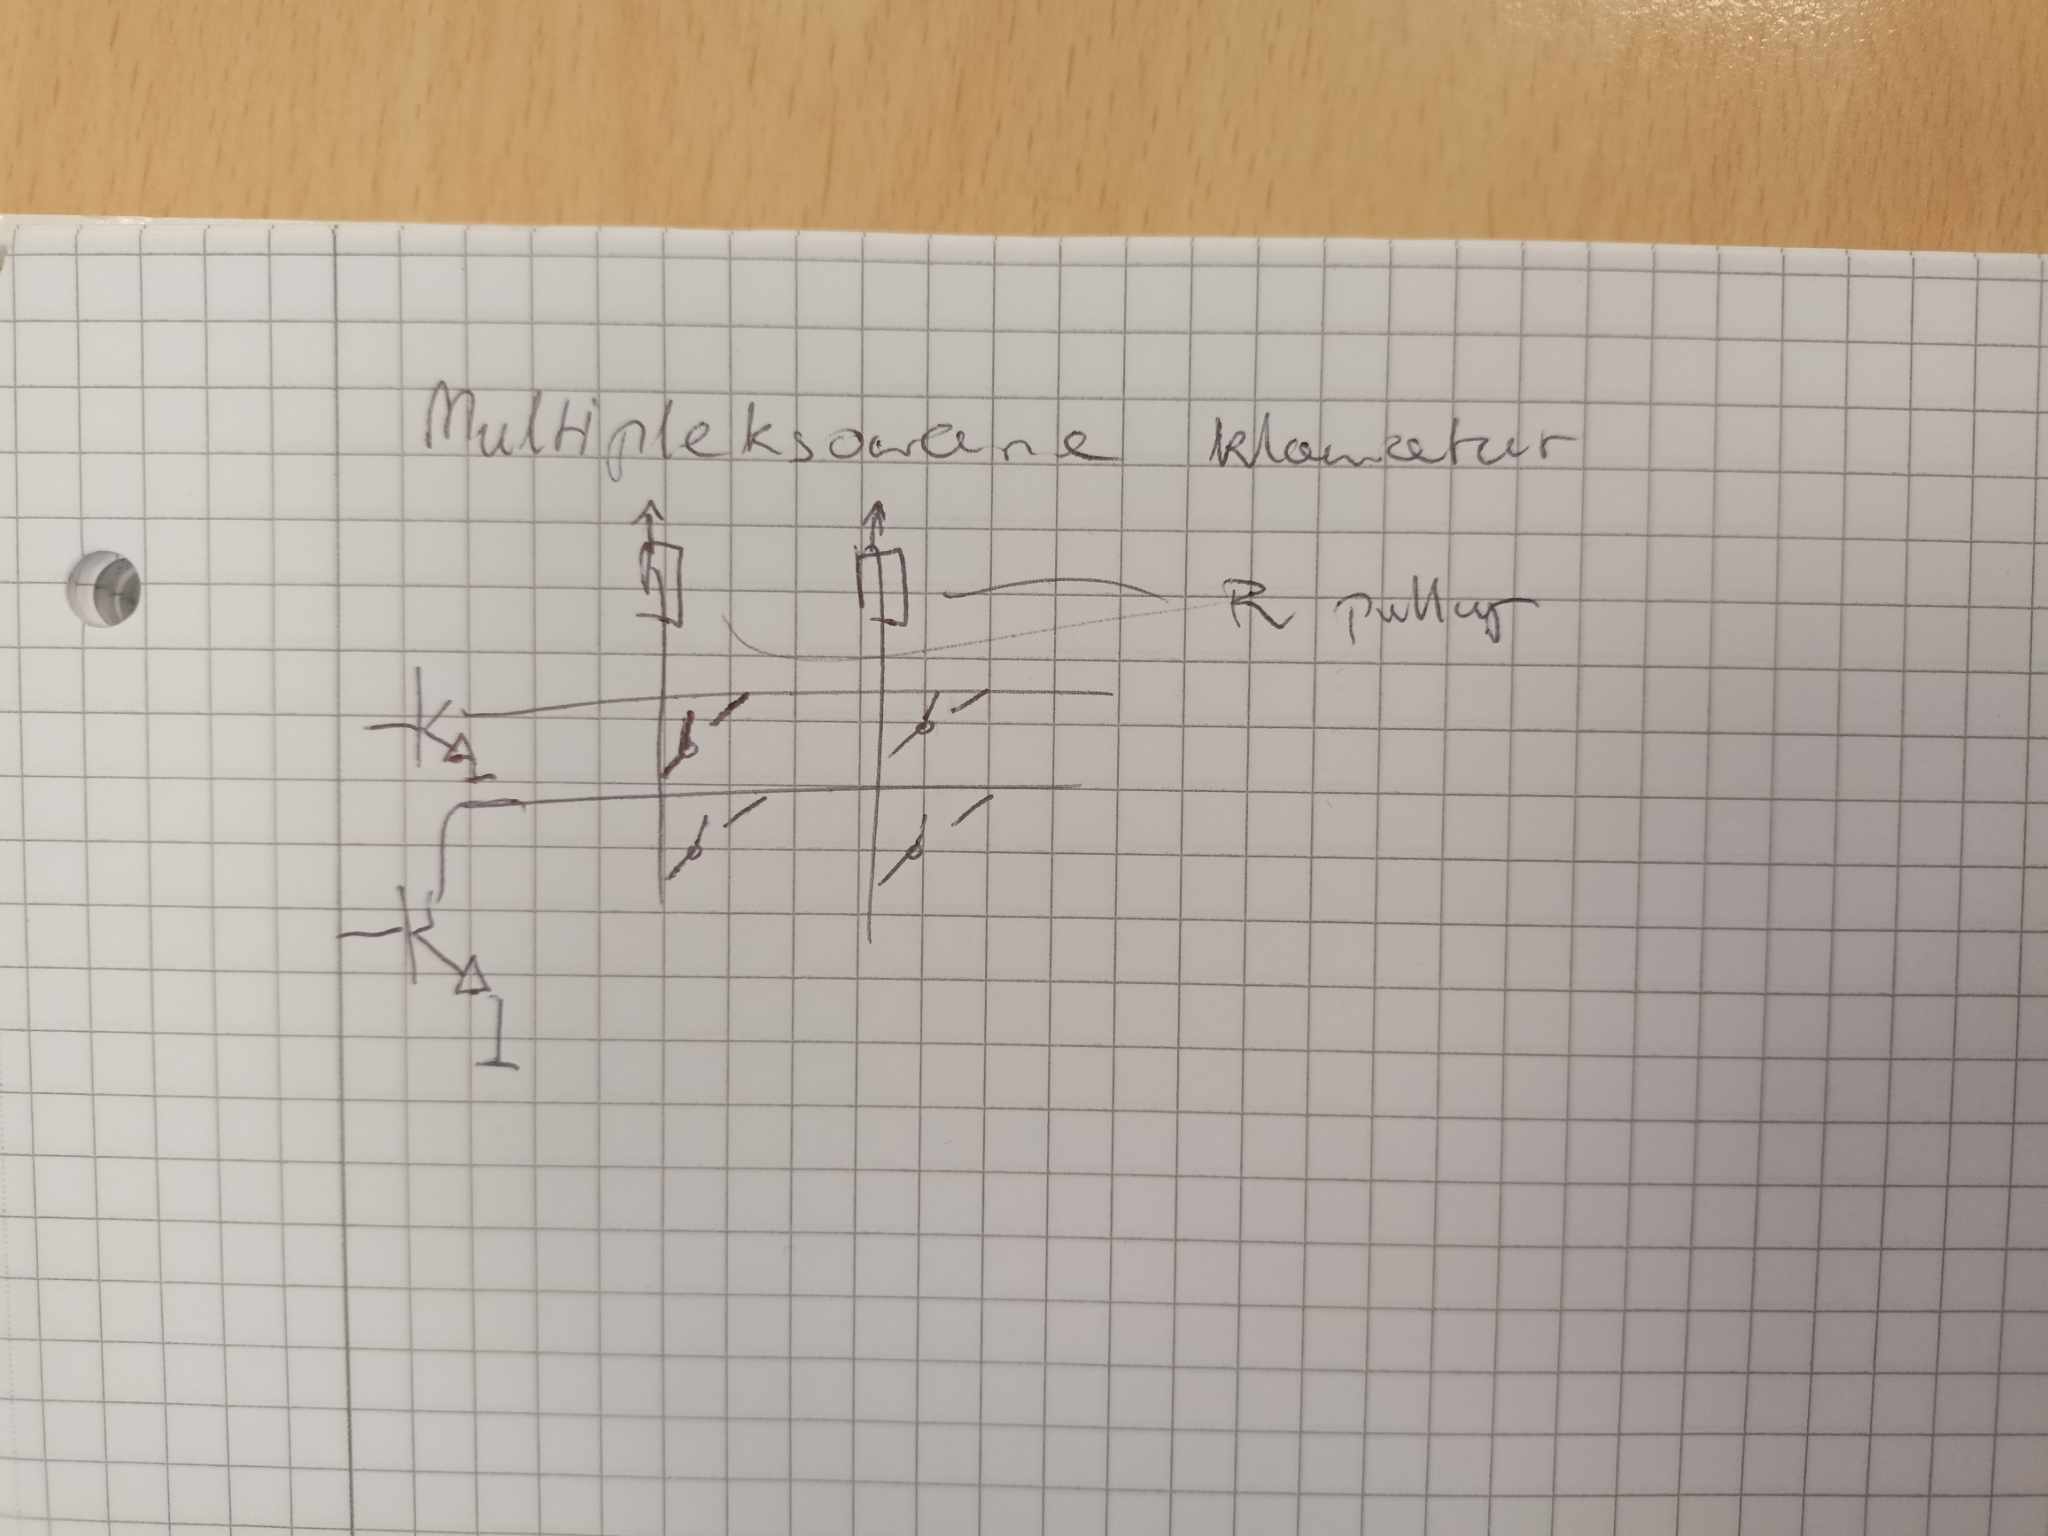 Multipleksowane klawiatur
R pullup